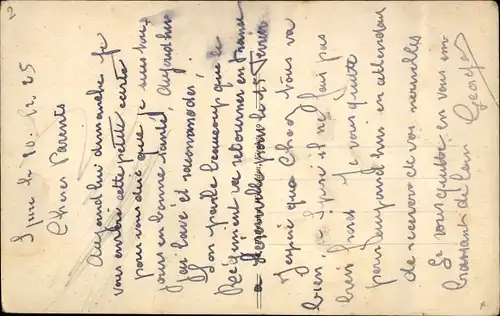 le 20. 12. 25
Chers Parents
Aujourd'hui dimanche je
vous envoie cette petite carte
pour vous dire que je suis tou
jours en bonne santé, Aujourd'hui
j'ai lavé et raccommoder,
L'on parle beaucoup que le
Régiment va retourner en France
à pour le 1er
J'espère que Chez Vous va
bien, à ici il ne fait pas
bien froid Je vous quitte
pour aujourd'hui en attendant
de recevoir de vos nouvelles
Je vous quitte en vous em
brassant de loin